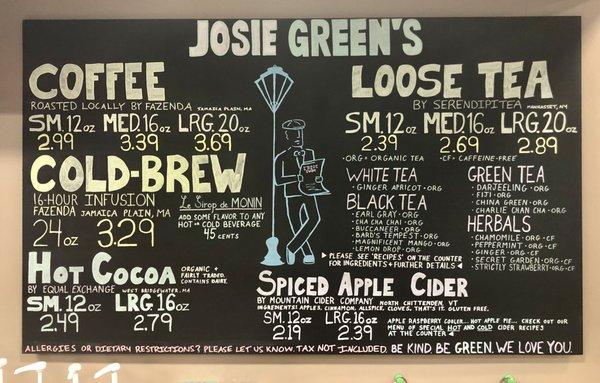 JOSIE GREEN'S
COFFEE
ROASTED LOCALLY BY FAZENDA JAMAICA PLAIN, MA
SM. 12oz MED. 16oz LRG. 20oz
2.99 3.39 3.69
COLD-BREW
16-HOUR INFUSION
FAZENDA JAMAICA PLAIN, MA
24oz 3.29
Le Sirop de MONIN
ADD SOME FLAVOR TO ANY
HOT OR COLD BEVERAGE
45 CENTS
HOT COCOA
ORGANIC +
FAIRLY TRADED.
CONTAINS DAIRY.
BY EQUAL EXCHANGE WEST BRIDGEWATER, MA
SM. 12oz LRG. 16oz
2.49 2.79
LOOSE TEA
BY SERENDIPITEA MANHASSET, NY
SM. 12oz MED. 16oz LRG. 20oz
2.39 2.69 2.89
·ORG = ORGANIC TEA ·CF = CAFFEINE-FREE
WHITE TEA
·GINGER APRICOT·ORG
BLACK TEA
·EARL GRAY·ORG
·CHA CHA CHAI·ORG
·BUCCANEER·ORG
·BARD'S TEMPEST·ORG
·MAGNIFICENT MANGO·ORG
·LEMON DROP·ORG
GREEN TEA
·DARJEELING·ORG
·FIJI·ORG
·CHINA GREEN·ORG
·CHARLIE CHAN CHA·ORG
HERBALS
·CHAMOMILE·ORG·CF
·PEPPERMINT·ORG·CF
·GINGER·ORG·CF
·SECRET GARDEN·ORG·CF
·STRICTLY STRAWBERRY·ORG·CF
▶ PLEASE SEE 'RECIPES' ON THE COUNTER
FOR INGREDIENTS + FURTHER DETAILS ◀
SPICED APPLE CIDER
BY MOUNTAIN CIDER COMPANY NORTH CHITTENDEN, VT
INGREDIENTS: APPLES, CINNAMON, ALLSPICE, CLOVES, THAT'S IT. GLUTEN FREE.
SM. 12oz LRG. 16oz
2.19 2.39
APPLE RASPBERRY COOLER... HOT APPLE PIE... CHECK OUT OUR
MENU OF SPECIAL HOT AND COLD CIDER RECIPES
AT THE COUNTER
ALLERGIES OR DIETARY RESTRICTIONS? PLEASE LET US KNOW. TAX NOT INCLUDED. BE KIND. BE GREEN. WE LOVE YOU.